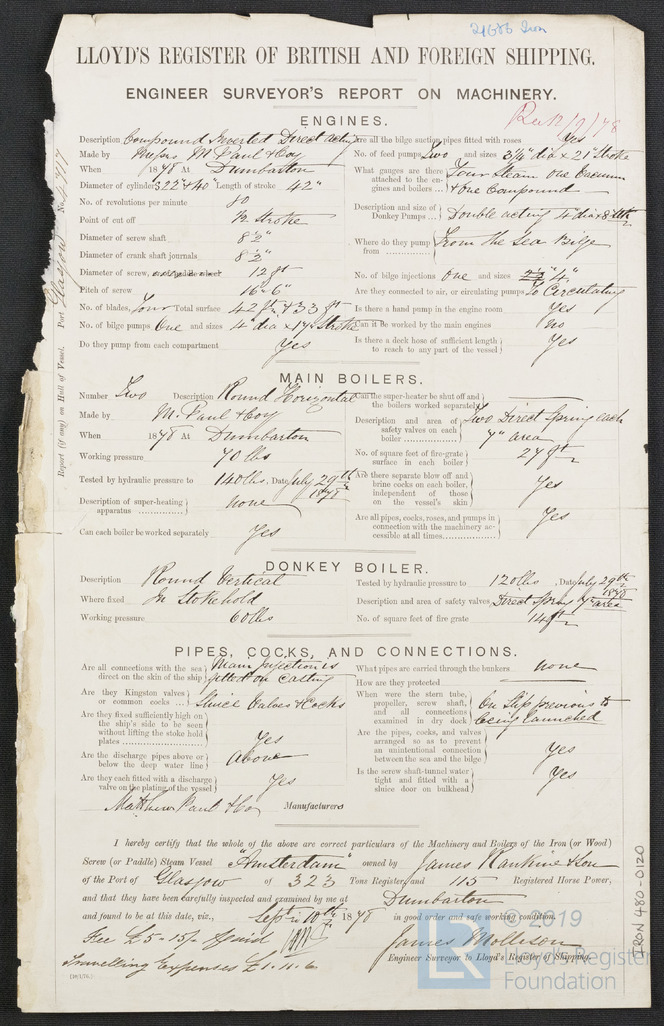 21686 Iron
LLOYD'S REGISTER OF BRITISH AND FOREIGN SHIPPING.
ENGINEER SURVEYOR'S REPORT ON MACHINERY.
Rec 12/9/78
Port Glasgow No.
Report (if any) on Hull of Vessel.
ENGINES.
Description Compound Inverted Direct Acting
Made by Messrs M. Paul & Coy
When 1878 At Dumbarton
Diameter of cylinders 22" & 40" Length of stroke 42"
No. of revolutions per minute 80
Point of cut off 1/2 Stroke
Diameter of screw shaft 8 1/2"
Diameter of crank shaft journals 8 1/2"
Diameter of screw, 12 ft
Pitch of screw 16"6"
No. of blades, Four Total surface 42 ft
No. of bilge pumps One and sizes 4" dia x 17" Stroke
Do they pump from each compartment Yes
Are all the bilge suction pipes fitted with roses Yes
No. of feed pumps Two and sizes 3 1/4" dia x 21" Stroke
What gauges are there attached to the engines and boilers ... Four Steam One Vacuum & One Compound
Description and size of Donkey Pumps ... Double acting 4" dia x 8
Where do they pump from .............. From the Sea Bilge
No. of bilge injections One and sizes 4"
Are they connected to air, or circulating pumps To Circulating
Is there a hand pump in the engine room Yes
Can it be worked by the main engines no
Is there a deck hose of sufficient length to reach to any part of the vessel Yes
MAIN BOILERS.
Number Two Description Round Horizontal
Made by M. Paul & Coy
When 1878 At Dumbarton
Working pressure 70 lbs
Tested by hydraulic pressure to 140 lbs, Date July 29th 1878
Description of super-heating apparatus .............. none
Can each boiler be worked separately Yes
Can the super-heater be shut off and the boilers worked separately
Description and area of safety valves on each boiler .............. Two Direct Spring each 7" area
No. of square feet of fire-grate surface in each boiler 27 ft
Are there separate blow off and brine cocks on each boiler, independent of those on the vessel's skin Yes
Are all pipes, cocks, roses, and pumps in connection with the machinery accessible at all times.............. Yes
DONKEY BOILER.
Description Round Vertical
Where fixed In Stokehold
Working pressure 60 lbs
Tested by hydraulic pressure to 120 lbs, Date July 29th 1878
Description and area of safety valves, Direct Spring 7" area
No. of square feet of fire grate 14 ft
PIPES, COCKS, AND CONNECTIONS.
Are all connections with the sea direct on the skin of the ship Main Injection is fitted on Casting
Are they Kingston valves or common cocks ... Sluice Valves & Cocks
Are they fixed sufficiently high on the ship's side to be seen without lifting the stoke hold plates .............. Yes
Are the discharge pipes above or below the deep water line Above
Are they each fitted with a discharge valve on the plating of the vessel Yes
What pipes are carried through the bunkers none
How are they protected
When were the stern tube, propeller, screw shaft, and all connections examined in dry dock On Slip previous to being launched
Are the pipes, cocks, and valves arranged so as to prevent an unintentional connection between the sea and the bilge Yes
Is the screw shaft-tunnel water tight and fitted with a sluice door on bulkhead Yes
Matthew Paul & Co Manufacturers
I hereby certify that the whole of the above are correct particulars of the Machinery and Boilers of the Iron (or Wood)
Screw (or Paddle) Steam Vessel "Amsterdam" owned by James Rankine & Son
of the Port of Glasgow of 323 Tons Register, and 115 Registered Horse Power,
and that they have been carefully inspected and examined by me at Dumbarton
and found to be at this date, viz., Sept. 10th 1878 in good order and safe working condition.
Fee £5-15/- paid
James Mollison
Travelling Expenses £1.11.6
Engineer Surveyor to Lloyd's Register of Shipping.
IRON 480-0120
© 2019
LR
Lloyd's Register
Foundation